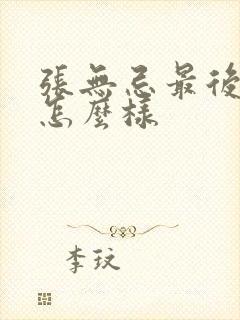 張無忌最後
怎麼樣
李玟